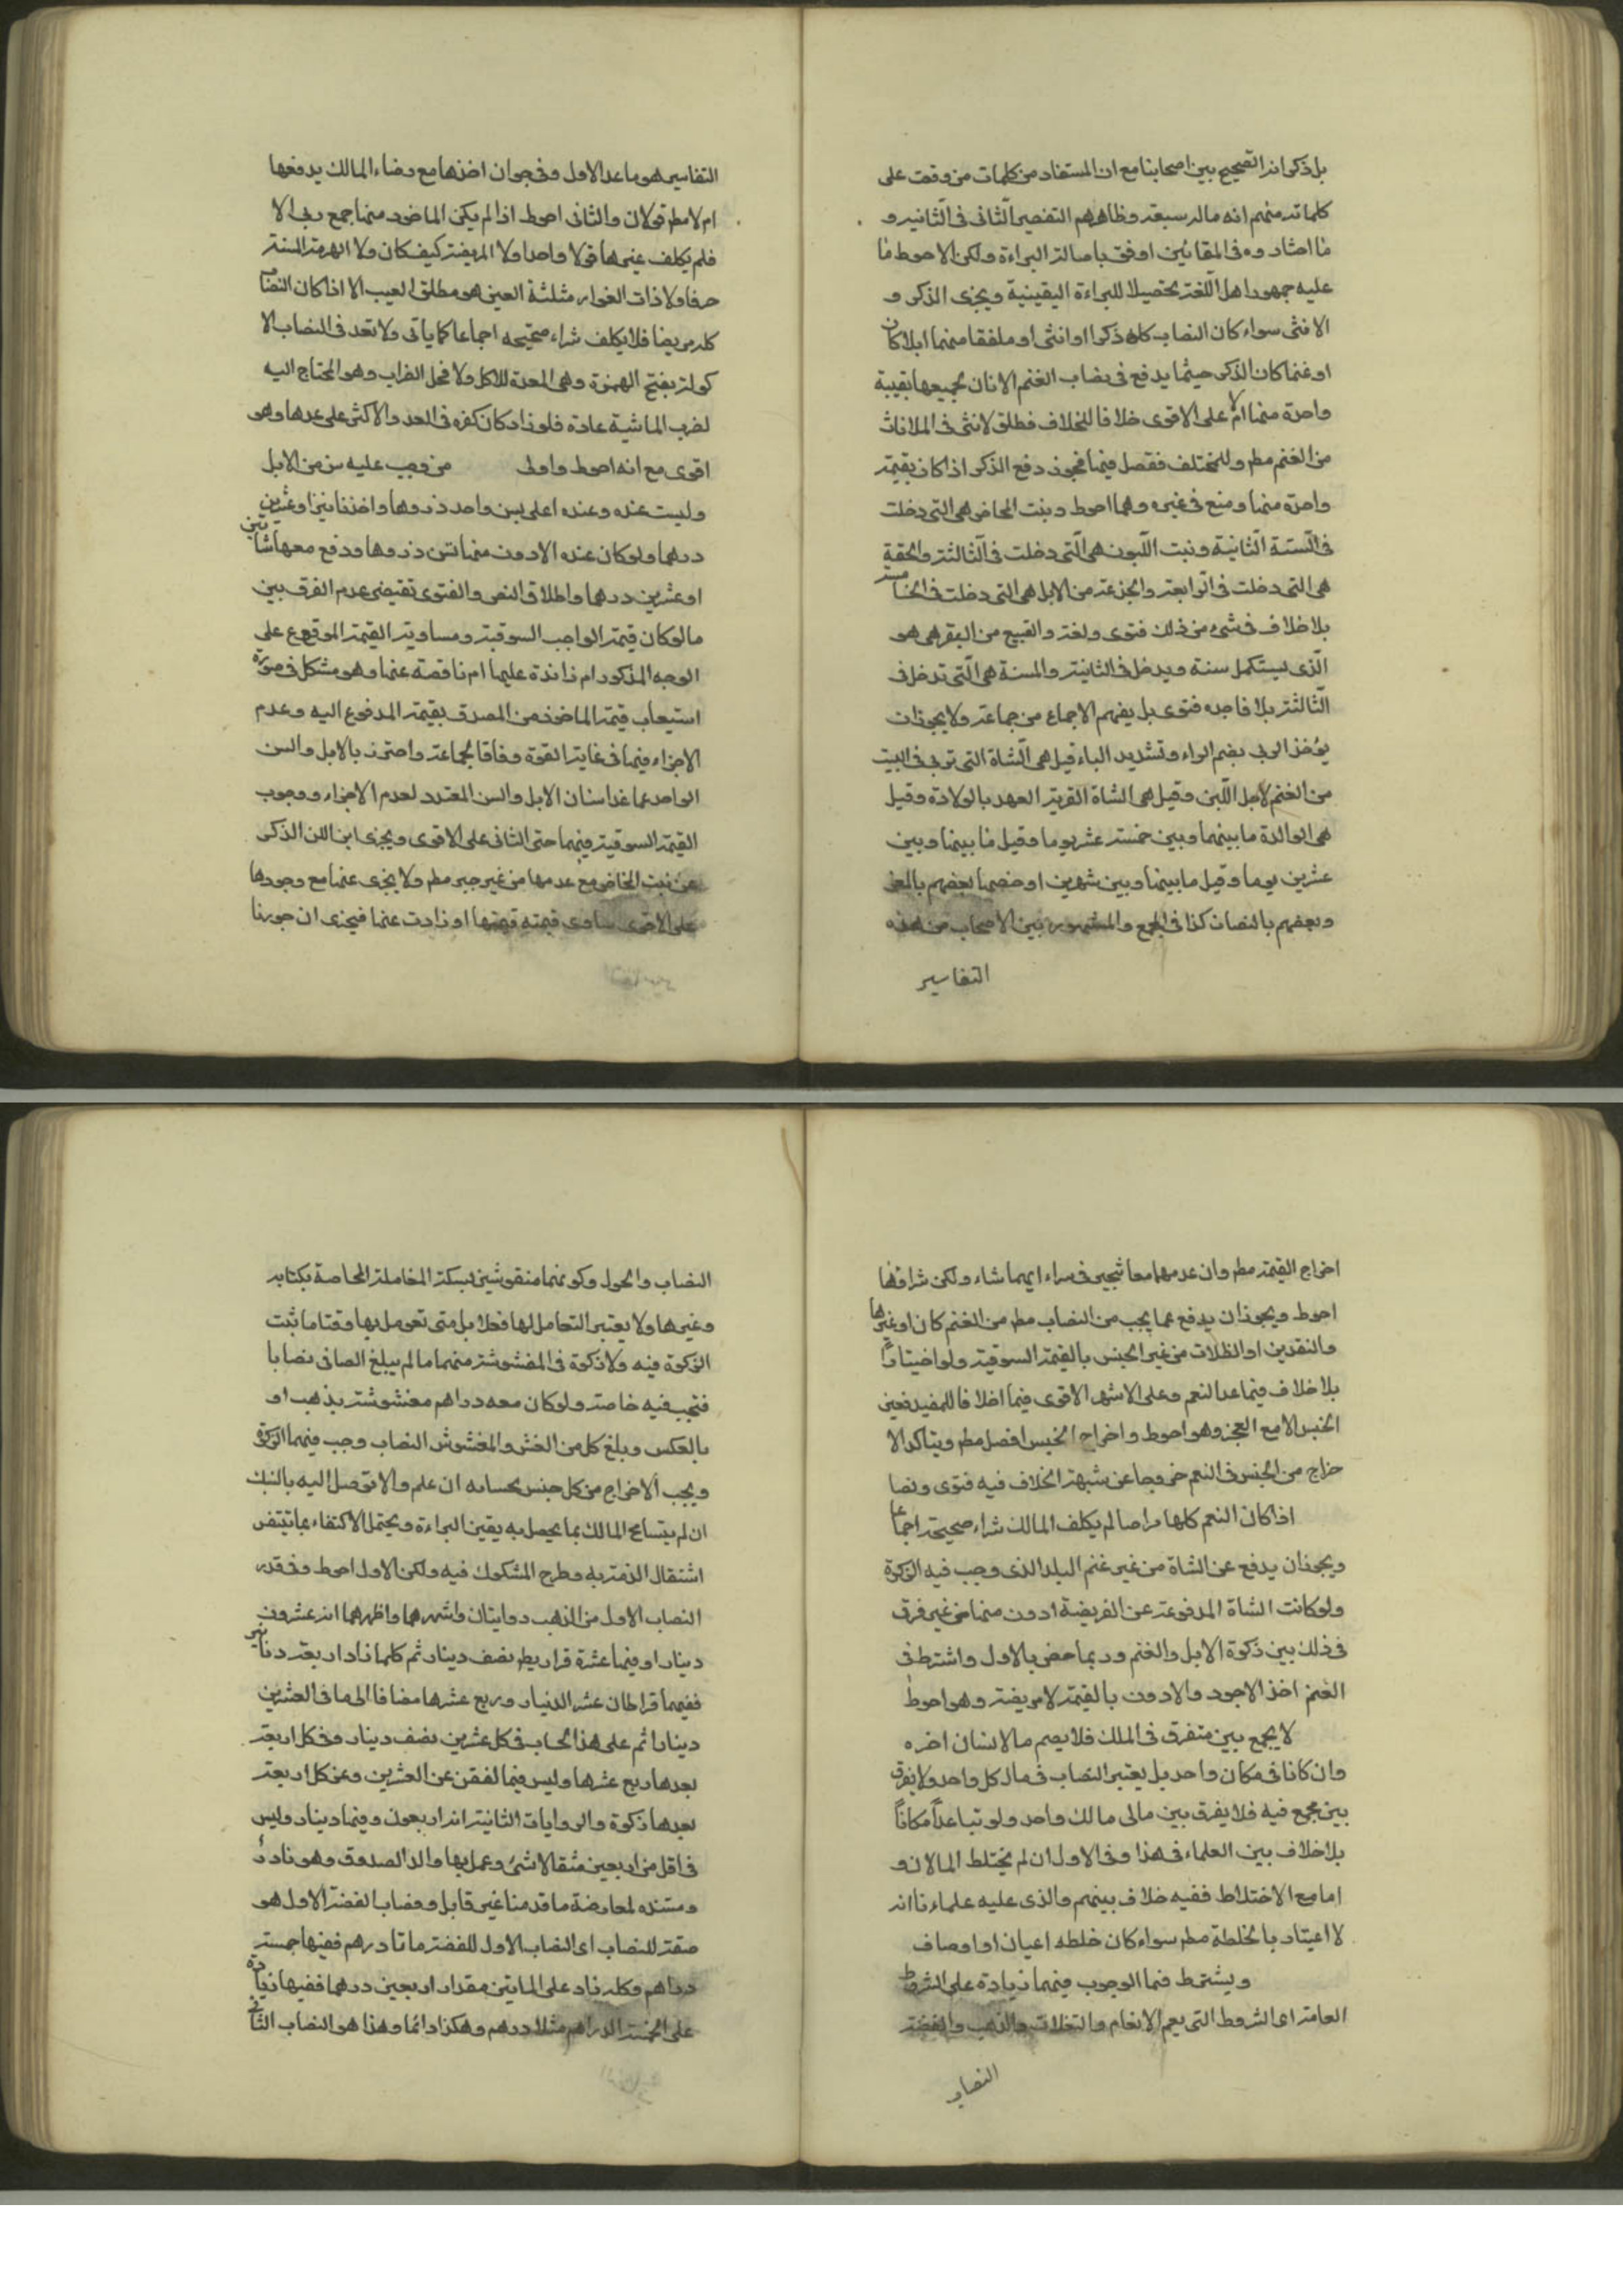 بل ذكر انه الصحيح بين اصحابنا مع ان المستفاد من كلمات من وقفت على
كلماته منهم انه ماله سبعة وظاهرهم التفصي الثاني في الثانية و
ما اختاروه في المقامين اوفق باصالة البراءة ولكن الاحوط ما
عليه جمهور اهل اللغة تحصيلا للبراءة اليقينية ويجزى الذكر و
الانثى سواء كان النصاب كله ذكرا او انثى او ملفقا منهما ابلا كان
او غنما كان الذكر حيثما يدفع في نصاب الغنم الاناث بجميعها بقيمة
واحدة منها ام لا على الاقوى خلافا للخلاف فطلق لانثى في الملاناث
من الغنم مطم وللمختلف ففصل فيها فجوز دفع الذكر اذا كان بقيمة
واحدة منها ومنع في غيره وهما احوط وبنت المخاض هي التي دخلت
في السنة الثانية وبنت اللبون هي التي دخلت في الثالثة والحقة
هي التي دخلت في الرابعة والجذعة من الابل هي التي دخلت في الخامسة
بلا خلاف في شيء من ذلك فتوى ولغة والتبيع من البقر هو
الذى يستكمل سنة ويدخل في الثانية والمسنة هي التي تدخل في
الثالثة بلا فاجده فتوى بل يفهم الاجماع من جماعة ولا يجوز ان
يؤخذ الربى بضم الراء وتشديد الباء قيل هي الشاة التي تربى في البيت
من الغنم لاجل اللبن وقيل هي الشاة القريبة العهد بالولادة وقيل
هي الوالدة ما بينها وبين خمسة عشر يوما وقيل ما بينها وبين
عشرين يوما وقيل ما بينها وبين شهرين او خصها بعضهم بالمعز
وبعضهم بالضان كذا في الجمع والمشهور بين الاصحاب من هذه
التفاسير
التفاسير هو ماعدا الاول وفي جواز اخذها مع رضاء المالك يدفعها
ام لا مطم قولان والثاني احوط اذا لم يكن الماخوذ منها جمع ربى الا
فلم يكلف غيرها قولا واحدا ولا المريضة كيف كان ولا الهرمة المسنة
عرفا ولا ذات العوار مثلثة العين هو مطلق العيب الا اذا كان النصاب
كله مريضا فلا يكلف شراء صحيحه اجماعا كما ياتى ولا تعد في النصاب الا
كولة بفتح الهمزة وهي المعدة للاكل ولا فحل الضراب وهو المحتاج اليه
لضرب الماشية عادة فلو زاد كان كغيره في العد والاكثر على عدها وهو
اقوى مع انه احوط واولى من وجب عليه سن من الابل
وليست عنده وعنده اعلى بسن واحد دفعها واخذ شاتين او عشرين
درهما ولو كان عنده الادون منها بسن دفعها ودفع معها شاتين
او عشرين درهما واطلاق النص والفتوى تقيضى عدم الفرق بين
ما لو كان قيمة الواجب السوقية ومساوية القيمة الموقوع على
الوجه المذكور ام زائدة عليها ام ناقصة عنها وهو مشكل في صورة
استيعاب قيمة الماخوذ من المصدق بقيمة المدفوع اليه وعدم
الاجزاء فيها في غاية القوة وفاقا لجماعة واحترز بالابل والسن
الواحد عما عدا اسنان الابل والسن المتعدد لعدم الاجزاء ووجوب
القيمة السوقية فيهما حتى الثانى على الاقوى ويجزى ابن اللبن الذكر
عن بنت المخاض مع عدمها من غير جبر مطم ولا يجزى عنها مع وجودها
على الاقوى ساوى قيمته قيمتها او زادت عنها فيجزى ان جوزنا
اخراج القيمة مطم وان عدمهما معا تخير في شراء ايهما شاء ولكن شراؤها
احوط ويجوز ان يدفع عما يجب من النصاب مطم من الغنم كان او غيرها
والنقدين او الغلات من غير الجنس بالقيمة السوقية ولو اختيارا
بلا خلاف فيما عدا النعم وعلى الاشهر الاقوى فيها خلافا للمفيد فعين
الجنس الا مع العجز وهو احوط واخراج الجنس افضل مطم ويتاكد الا
خراج من الجنس في النعم خروجا عن شبهة الخلاف فيه فتوى ونصا
اذا كان النعم كلها مراضا لم يكلف المالك شراء صحيحة اجماعا
ويجوز ان يدفع عن الشاة من غير غنم البلد الذى وجب فيه الزكوة
ولو كانت الشاة المدفوعة عن الفريضة ادون منها من غير فرق
في ذلك بين زكوة الابل والغنم وربما خص بالاول واشترط في
الغنم اخذ الاجود والادون بالقيمة لا مريضة وهو احوط
لا يجمع بين متفرق في الملك فلا يضم مال انسان اخره
وان كانا في مكان واحد بل يعتبر النصاب في مال كل واحد ولا يفرق
بين مجمع فيه فلا يفرق بين مالى مالك واحد ولو تباعدا مكانا
بلا خلاف بين العلماء في هذا وفي الاول ان لم يختلط المالان و
اما مع الاختلاط ففيه خلاف بينهم والذى عليه علماءنا انه
لا اعتبار بالخلطة مطم سواء كان خلطه اعيان او اوصاف
ويشترط فما الوجوب فيهما زيادة على الشروط
العامة اى الشروط التى يعم الانعام والغلات والذهب والفضة
النصاب
النصاب والحول وكونهما منقوشين بسكة المعاملة الخاصة بكتابة
وغيرها ولا يعتبر التعامل لها فعلا بل متى تعومل بها وقتا ما ثبت
الزكوة فيه ولا زكوة في المغشوشة منهما ما لم يبلغ الصافى نصابا
فتجب فيه خاصة ولو كان معه دراهم مغشوشة بذهب او
بالعكس وبلغ كل من الغش والمغشوش النصاب وجب فيهما الزكوة
ويجب الاخراج من كل جنس بحسابه ان علم والا توصل اليه بالسبك
ان لم يتسامح المالك بما يحصل به يقين البراءة ويحتمل الاكتفاء بما تيقن
اشتغال الذمة به وطرح المشكوك فيه ولكن الاول احوط وفي قدر
النصاب الاول من الذهب روايتان واشهرهما واظهرهما انه عشرون
دينارا وفيها عشرة قراريط نصف دينار ثم كلما زاد اربعة دنانير
ففيهما قراطان عشر الدينار وربع عشرها مضافا الى ما في العشرين
دينارا ثم على هذا الحساب في كل عشرين نصف دينار وفي كل اربعة
بعدها ربع عشرها وليس فيما نقص عن العشرين وعن كل اربعة
بعدها زكوة والروايات الثانية انه اربعون وفيها دينار وليس
في اقل من اربعين مثقالا شئ وعمل بها والد الصدوق وهو نادر
ومستنده لمعارضة ما قدمنا غير قابل ونصاب الفضة الاول هو
صفة للنصاب اى النصاب الاول للفضة ماتا درهم ففيها خمسة
دراهم وكله زاد على الماتين مقدار اربعين درهما ففيها زيادة
على الخمسة الدراهم مثلا درهم وهكذا دائما وهذا هو النصاب الثانى